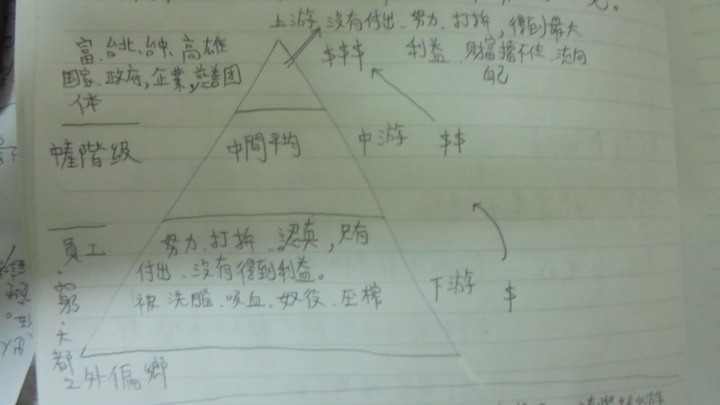 上游 沒有付出、努力、打拚，得到最大
利益、財富擋不住、流向
自己
$$$
富、台北、台中、高雄
國家、政府，企業，慈善团
体
中產階級
中間平均
中游 $$
員工
努力、打拚、認真，只有
付出、沒有得到利益。
被洗腦、吸血、奴役、压榨
下游 $
窮、大都
之外偏鄉